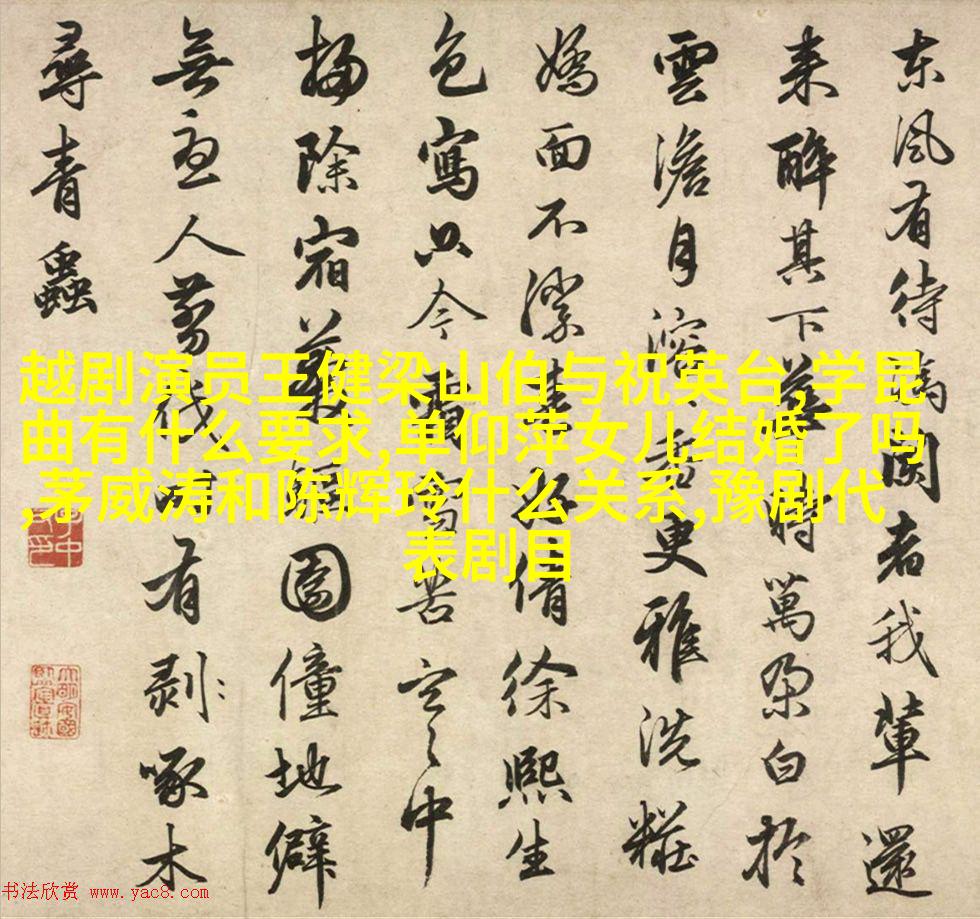 東風有待閑者我輩還
来醉其下花時萬朵白於
雲澹月溶更雅洗糚
嬌面不倩徐熙生
色寫只今苦空之中
掃除宿園僮地僻
無人剪伐有剥啄木
尋青蟲
越剧演员王健梁山伯与祝英台,学昆
曲有什么要求,单仰萍女儿结婚了吗
,茅威涛和陈辉玲什么关系,豫剧代
表剧目
书法欣赏 www.yac8.com